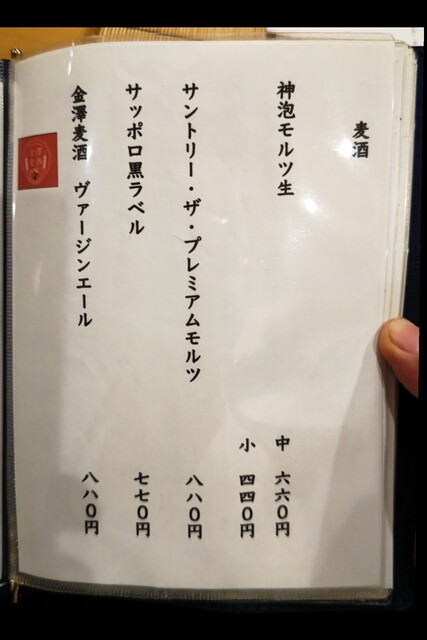 麦酒
神泡モルツ生 中 六六〇円
小 四四〇円
サントリー・ザ・プレミアムモルツ 八八〇円
サッポロ黒ラベル 七七〇円
金澤麦酒 ヴァージンエール 八八〇円
金澤
麦酒